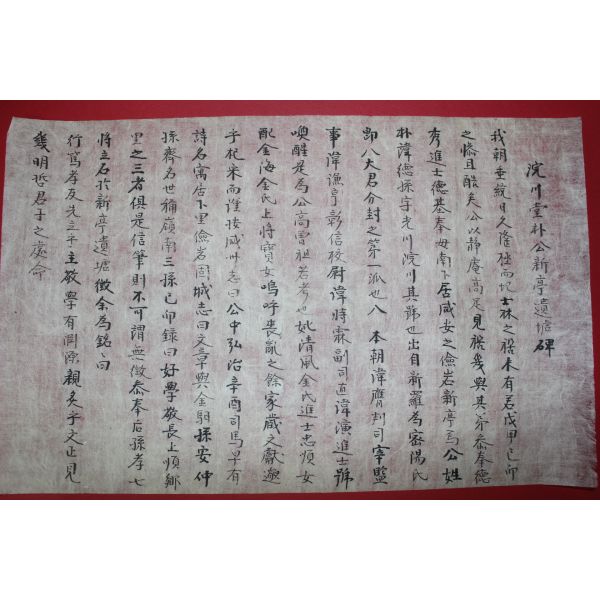 浣川堂朴公新亭遺墟碑
我朝垂統日久隆極而圮士林之禍未有若戊甲己卯
之慘且酷矣公以靜庵高足見禍幾與其弟參奉德
秀進士德基奉母南下居咸安之儉岩新亭焉公姓
朴諱德孫字光川浣川其號也出自新羅為密陽氏
卽八大君分封之第一派也入 本朝諱膺判司宰監
事諱謙亨彰信校尉諱時霖副司直諱演進士號
喚醒是為公高曾祖若考也妣清風金氏進士忠順女
配金海金氏上將寶女嗚呼喪亂之餘家藏之獻邈
乎杞宋而謹按咸州志曰公中弘治辛酉司馬早有
詩名寓居下里儉岩固城志曰文章與金馹孫安仲
孫齊名世稱嶺南三孫己卯錄曰好學敬長上順鄉
里之三者俱是信筆則不可謂無徵參奉后孫孝七
將立石於新亭遺墟徵余為銘銘曰
行篤孝友先立乎主敬學有淵源親炙乎文正見
幾明哲君子之處命